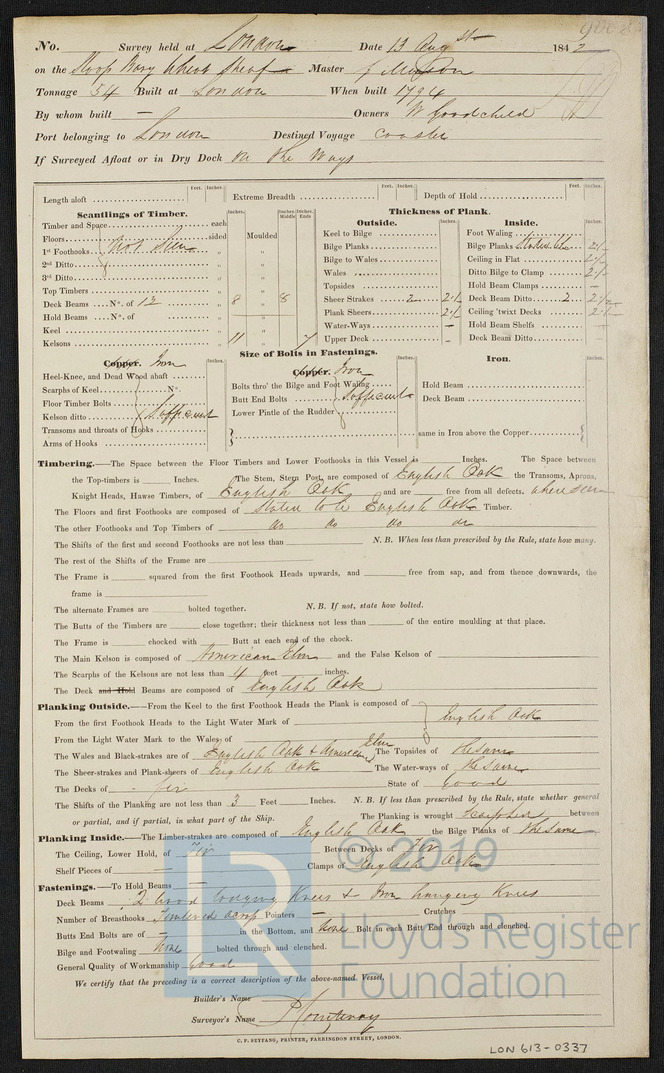 No. Survey held at London Date 13 Augst 1842
on the Sloop Barge Wheat Sheaf Master
Tonnage 54 Built at London When built 1794
By whom built — Owners W Goodchild
Port belonging to London Destined Voyage Coaster
If Surveyed Afloat or in Dry Dock On the Ways
Feet. Inches. Feet. Inches. Feet. Inches.
Length aloft Extreme Breadth Depth of Hold
Scantlings of Timber.
Inches. Inches Middle Inches Ends
Timber and Space each
Floors sided Moulded
1st Foothooks Not Seen
2nd Ditto
3rd Ditto
Top Timbers
Deck Beams No. of 12 8 8
Hold Beams No. of
Keel
Kelsons 11 7
Thickness of Plank.
Outside. Inches.
Keel to Bilge
Bilge Planks
Bilge to Wales
Wales
Topsides
Sheer Strakes 2 2½
Plank Sheers 2½
Water-Ways —
Upper Deck —
Inside. Inches.
Foot Waling
Bilge Planks 2½
Ceiling in Flat 2½
Ditto Bilge to Clamp 2½
Hold Beam Clamps —
Deck Beam Ditto 2 2½
Ceiling 'twixt Decks 2½
Hold Beam Shelfs —
Deck Beam Ditto —
Size of Bolts in Fastenings.
Copper. Iron Inches.
Heel-Knee, and Dead Wood abaft
Scarphs of Keel No.
Floor Timber Bolts
Kelson ditto Sufficient
Transoms and throats of Hooks
Arms of Hooks
Copper. Iron Inches.
Bolts thro' the Bilge and Foot Waling
Butt End Bolts Sufficient
Lower Pintle of the Rudder
Iron. Inches.
Hold Beam
Deck Beam
same in Iron above the Copper
Timbering.—The Space between the Floor Timbers and Lower Foothooks in this Vessel is Inches. The Space between
the Top-timbers is Inches. The Stem, Stern Post, are composed of English Oak the Transoms, Aprons,
Knight Heads, Hawse Timbers, of English Oak and are free from all defects. where seen
The Floors and first Foothooks are composed of Stated to be English Oak Timber.
The other Foothooks and Top Timbers of do do do do
The Shifts of the first and second Foothooks are not less than N.B. When less than prescribed by the Rule, state how many.
The rest of the Shifts of the Frame are
The Frame is squared from the first Foothook Heads upwards, and free from sap, and from thence downwards, the
frame is
The alternate Frames are bolted together. N.B. If not, state how bolted.
The Butts of the Timbers are close together; their thickness not less than of the entire moulding at that place.
The Frame is chocked with Butt at each end of the chock.
The Main Kelson is composed of American Elm and the False Kelson of
The Scarphs of the Kelsons are not less than 4 feet inches.
The Deck and Hold Beams are composed of English Oak
Planking Outside.—From the Keel to the First Foothook Heads the Plank is composed of
From the first Foothook Heads to the Light Water Mark of English Oak
From the Light Water Mark to the Wales of
The Wales and Black-strakes are of English Oak & American Elm The Topsides of The Same
The Sheer-strakes and Plank-sheers of English Oak The Water-ways of The Same
The Decks of Fir State of Good
The Shifts of the Planking are not less than 3 Feet Inches. N.B. If less than prescribed by the Rule, state whether general
or partial, and if partial, in what part of the Ship. The Planking is wrought between
Planking Inside.—The Limber-strakes are composed of English Oak the Bilge Planks of The Same
The Ceiling, Lower Hold, of Fir Between Decks of Fir
Shelf Pieces of — Clamps of English Oak
Fastenings.—To Hold Beams —
Deck Beams 2 Wood lodging Knees & Iron hanging Knees
Number of Breasthooks Pointers — Crutches
Butts End Bolts are of — in the Bottom, and None Bolt in each Butt End through and clenched.
Bilge and Footwaling None bolted through and clenched.
General Quality of Workmanship Good
We certify that the preceding is a correct description of the above-named Vessel.
Builder's Name
Surveyor's Name P Courtenay
C. F. SEYFANG, PRINTER, FARRINGDON STREET, LONDON.
LON 613-0337
© 2019
Lloyd's Register
Foundation
LR